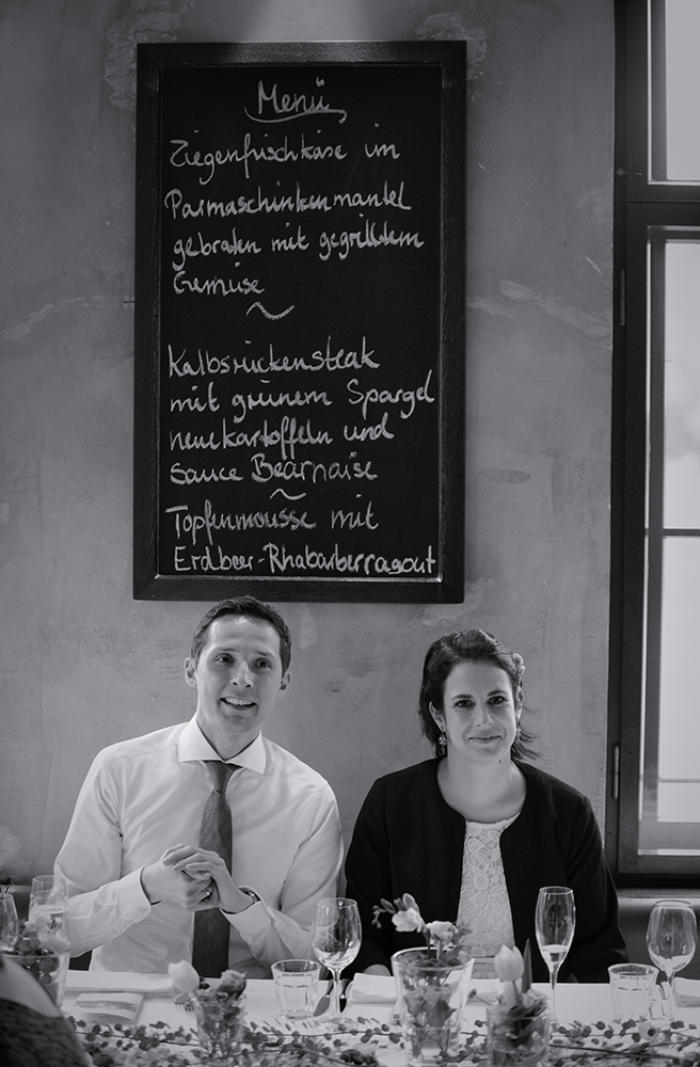 Menü
Ziegenfrischkäse im
Parmaschinkenmantel
gebraten mit gegrilltem
Gemüse
~
Kalbsrückensteak
mit grünem Spargel
neue kartoffeln und
Sauce Bearnaise
~
Topfenmousse mit
Erdbeer-Rhabarberragout